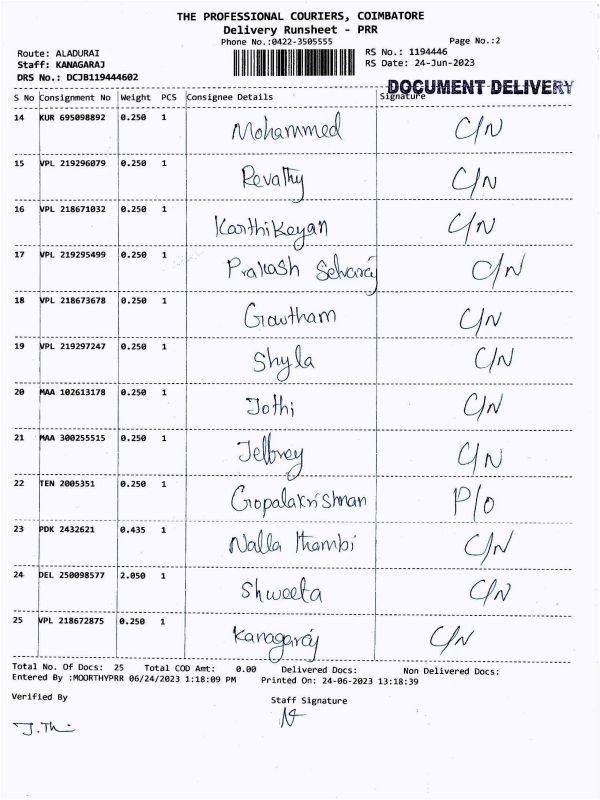 THE PROFESSIONAL COURIERS, COIMBATORE
Delivery Runsheet - PRR
Phone No.:0422-3505555 Page No.:2
Route: ALADURAI RS No.: 1194446
Staff: KANAGARAJ RS Date: 24-Jun-2023
DRS No.: DCJB119444602
DOCUMENT DELIVERY
S No Consignment No Weight PCS Consignee Details Signature
14 KUR 695098892 0.250 1 Mohammed C/N
15 VPL 219296079 0.250 1 Revathy C/N
16 VPL 218671032 0.250 1 Karthikeyan C/N
17 VPL 219295499 0.250 1 Prakash Selvaraj C/N
18 VPL 218673678 0.250 1 Gowtham C/N
19 VPL 219297247 0.250 1 Shyla C/N
20 MAA 102613178 0.250 1 Jothi C/N
21 MAA 300255515 0.250 1 C/N
22 TEN 2005351 0.250 1 Gopalakrishnan P/O
23 PDK 2432621 0.435 1 Nalla thambi C/N
24 DEL 250098577 2.050 1 Shweeta C/N
25 VPL 218672875 0.250 1 Kanagaraj C/N
Total No. Of Docs: 25 Total COD Amt: 0.00 Delivered Docs: Non Delivered Docs:
Entered By :MOORTHYPRR 06/24/2023 1:18:09 PM Printed On: 24-06-2023 13:18:39
Verified By Staff Signature